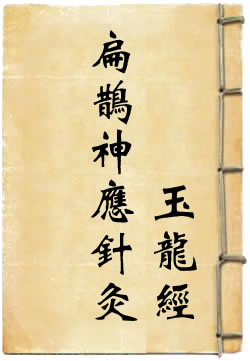 扁鵲神應針灸
玉龍經